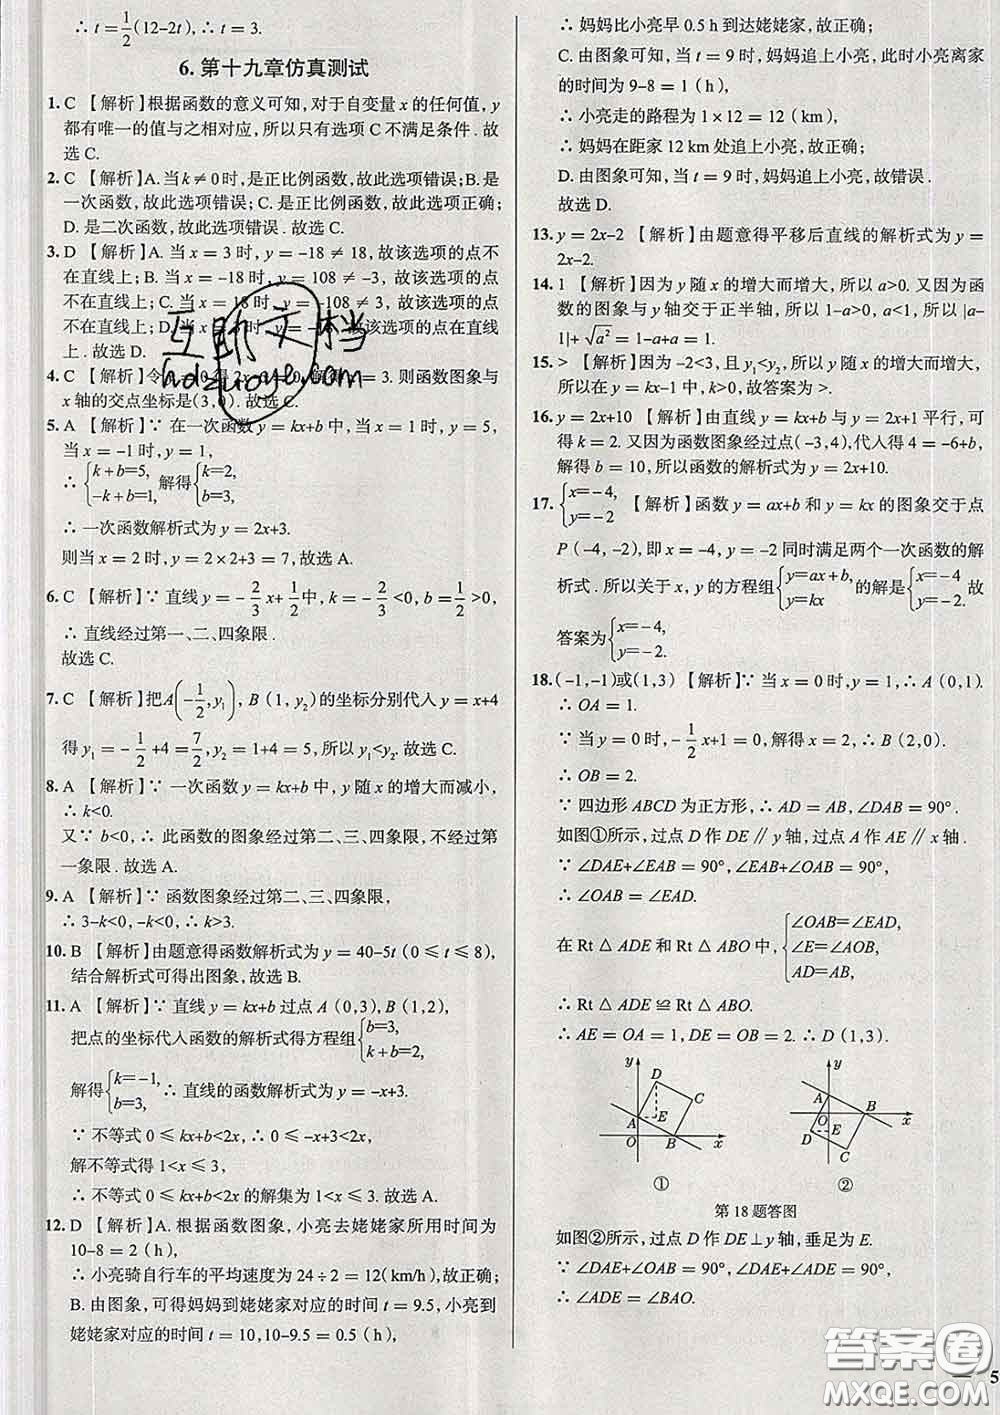 ∴ t=1/2(12-2t),∴ t=3.
6. 第十九章仿真测试
1. C 【解析】根据函数的意义可知,对于自变量 x 的任何值, y
都有唯一的值与之相对应,所以只有选项 C 不满足条件. 故
选 C.
2. C 【解析】A. 当 k≠0 时,是正比例函数,故此选项错误;B. 是
一次函数,故此选项错误;C. 是正比例函数,故此选项正确;
D. 是二次函数,故此选项错误. 故选 C.
3. D 【解析】A. 当 x = 3 时, y = -18 ≠ 18,故该选项的点不
在直线上;B. 当 x = -18 时, y = 108 ≠ -3,故该选项的点
不在直线上;C. 当 x = 18 时, y = -108 ≠ 3,故该选项的点
不在直线上;D. = -18,故该选项的点在直线
上. 故选 D.
4. C 【解析】令 = 3. 则函数图象与
x 轴的交点坐标是(3,0). 故选 C.
5. A 【解析】∵ 在一次函数 y = kx+b 中,当 x = 1 时, y = 5,
当 x = -1 时, y = 1,
∴ {k+b=5, -k+b=1, 解得 {k=2, b=3,
∴ 一次函数解析式为 y = 2x+3.
则当 x = 2 时, y = 2×2+3 = 7,故选 A.
6. C 【解析】∵ 直线 y= -2/3 x+1/2 中, k= -2/3 <0, b=1/2 >0,
∴ 直线经过第一、二、四象限.
故选 C.
7. C 【解析】把 A(-1/2,y₁), B (1, y₂)的坐标分别代人 y = x+4
得 y₁ = -1/2 +4 = 7/2, y₂ = 1+4 = 5,所以 y₁<y₂. 故选 C.
8. A 【解析】∵ 一次函数 y = kx+b 中, y 随 x 的增大而减小,
∴ k<0.
又∵ b<0,∴ 此函数的图象经过第二、三、四象限,不经过第
一象限. 故选 A.
9. A 【解析】∵ 函数图象经过第二、三、四象限,
∴ 3-k<0, -k<0,∴ k>3.
10. B 【解析】由题意得函数解析式为 y = 40-5t (0 ≤ t ≤ 8),
结合解析式可得出图象,故选 B.
11. A 【解析】∵ 直线 y = kx+b 过点 A (0,3), B (1,2),
把点的坐标代人函数的解析式得方程组 {b=3, k+b=2,
解得 {k=-1, b=3, ∴ 直线的函数解析式为 y = -x+3.
∵ 不等式 0 ≤ kx+b<2x,∴ 0 ≤ -x+3<2x,
解不等式得 1<x ≤ 3,
∴ 不等式 0 ≤ kx+b<2x 的解集为 1<x ≤ 3. 故选 A.
12. D 【解析】A. 根据函数图象,小亮去姥姥家所用时间为
10-8 = 2 (h),
∴ 小亮骑自行车的平均速度为 24÷2 = 12(km/h),故正确;
B. 由图象,可得妈妈到姥姥家对应的时间 t = 9.5,小亮到
姥姥家对应的时间 t = 10,10-9.5 = 0.5 (h),
∴ 妈妈比小亮早 0.5 h 到达姥姥家,故正确;
C. 由图象可知,当 t = 9 时,妈妈追上小亮,此时小亮离家
的时间为 9-8 = 1 (h),
∴ 小亮走的路程为 1×12 = 12 (km),
∴ 妈妈在距家 12 km 处追上小亮,故正确;
D. 由图象可知,当 t = 9 时,妈妈追上小亮,故错误.
故选 D.
13. y = 2x-2 【解析】由题意得平移后直线的解析式为 y =
2x-2.
14. 1 【解析】因为 y 随 x 的增大而增大,所以 a>0. 又因为函
数的图象与 y 轴交于正半轴,所以 1-a>0, a<1,所以 |a-
1|+√a² = 1-a+a = 1.
15. > 【解析】因为 -2<3,且 y₁<y₂,所以 y 随 x 的增大而增大,
所以在 y = kx-1 中, k>0,故答案为 >.
16. y = 2x+10 【解析】由直线 y = kx+b 与 y = 2x+1 平行,可
得 k = 2. 又因为函数图象经过点 (-3,4),代人得 4 = -6+b,
解得 b = 10,所以函数的解析式为 y = 2x+10.
17. {x=-4, y=-2 【解析】函数 y = ax+b 和 y = kx 的图象交于点
P (-4, -2),即 x = -4, y = -2 同时满足两个一次函数的解
析式. 所以关于 x, y 的方程组 {y=ax+b, y=kx 的解是 {x=-4 y=-2. 故
答案为 {x=-4, y=-2.
18. (-1,-1)或(1,3) 【解析】∵ 当 x = 0 时, y = 1,∴ A (0,1).
∴ OA = 1.
∵ 当 y = 0 时, -1/2 x+1 = 0,解得 x = 2,∴ B (2,0).
∴ OB = 2.
∵ 四边形 ABCD 为正方形,∴ AD = AB, ∠DAB = 90°.
如图①所示,过点 D 作 DE∥y 轴,过点 A 作 AE∥x 轴.
∵ ∠DAE+∠EAB = 90°, ∠EAB+∠OAB = 90°,
∴ ∠OAB = ∠EAD.
在 Rt △ ADE 和 Rt △ ABO 中, {∠OAB=∠EAD, ∠E=∠AOB, AD=AB,
∴ Rt △ ADE ≌ Rt △ ABO.
∴ AE = OA = 1, DE = OB = 2. ∴ D (1,3).
y D C A E O B x ①
y A B O x D E C ②
第 18 题答图
如图②所示,过点 D 作 DE⊥y 轴,垂足为 E.
∵ ∠DAE+∠OAB = 90°, ∠DAE+∠ADE = 90°,
∴ ∠ADE = ∠BAO.
— 5
互助文档
hdzuoye.com
答案圈
MXQE.COM